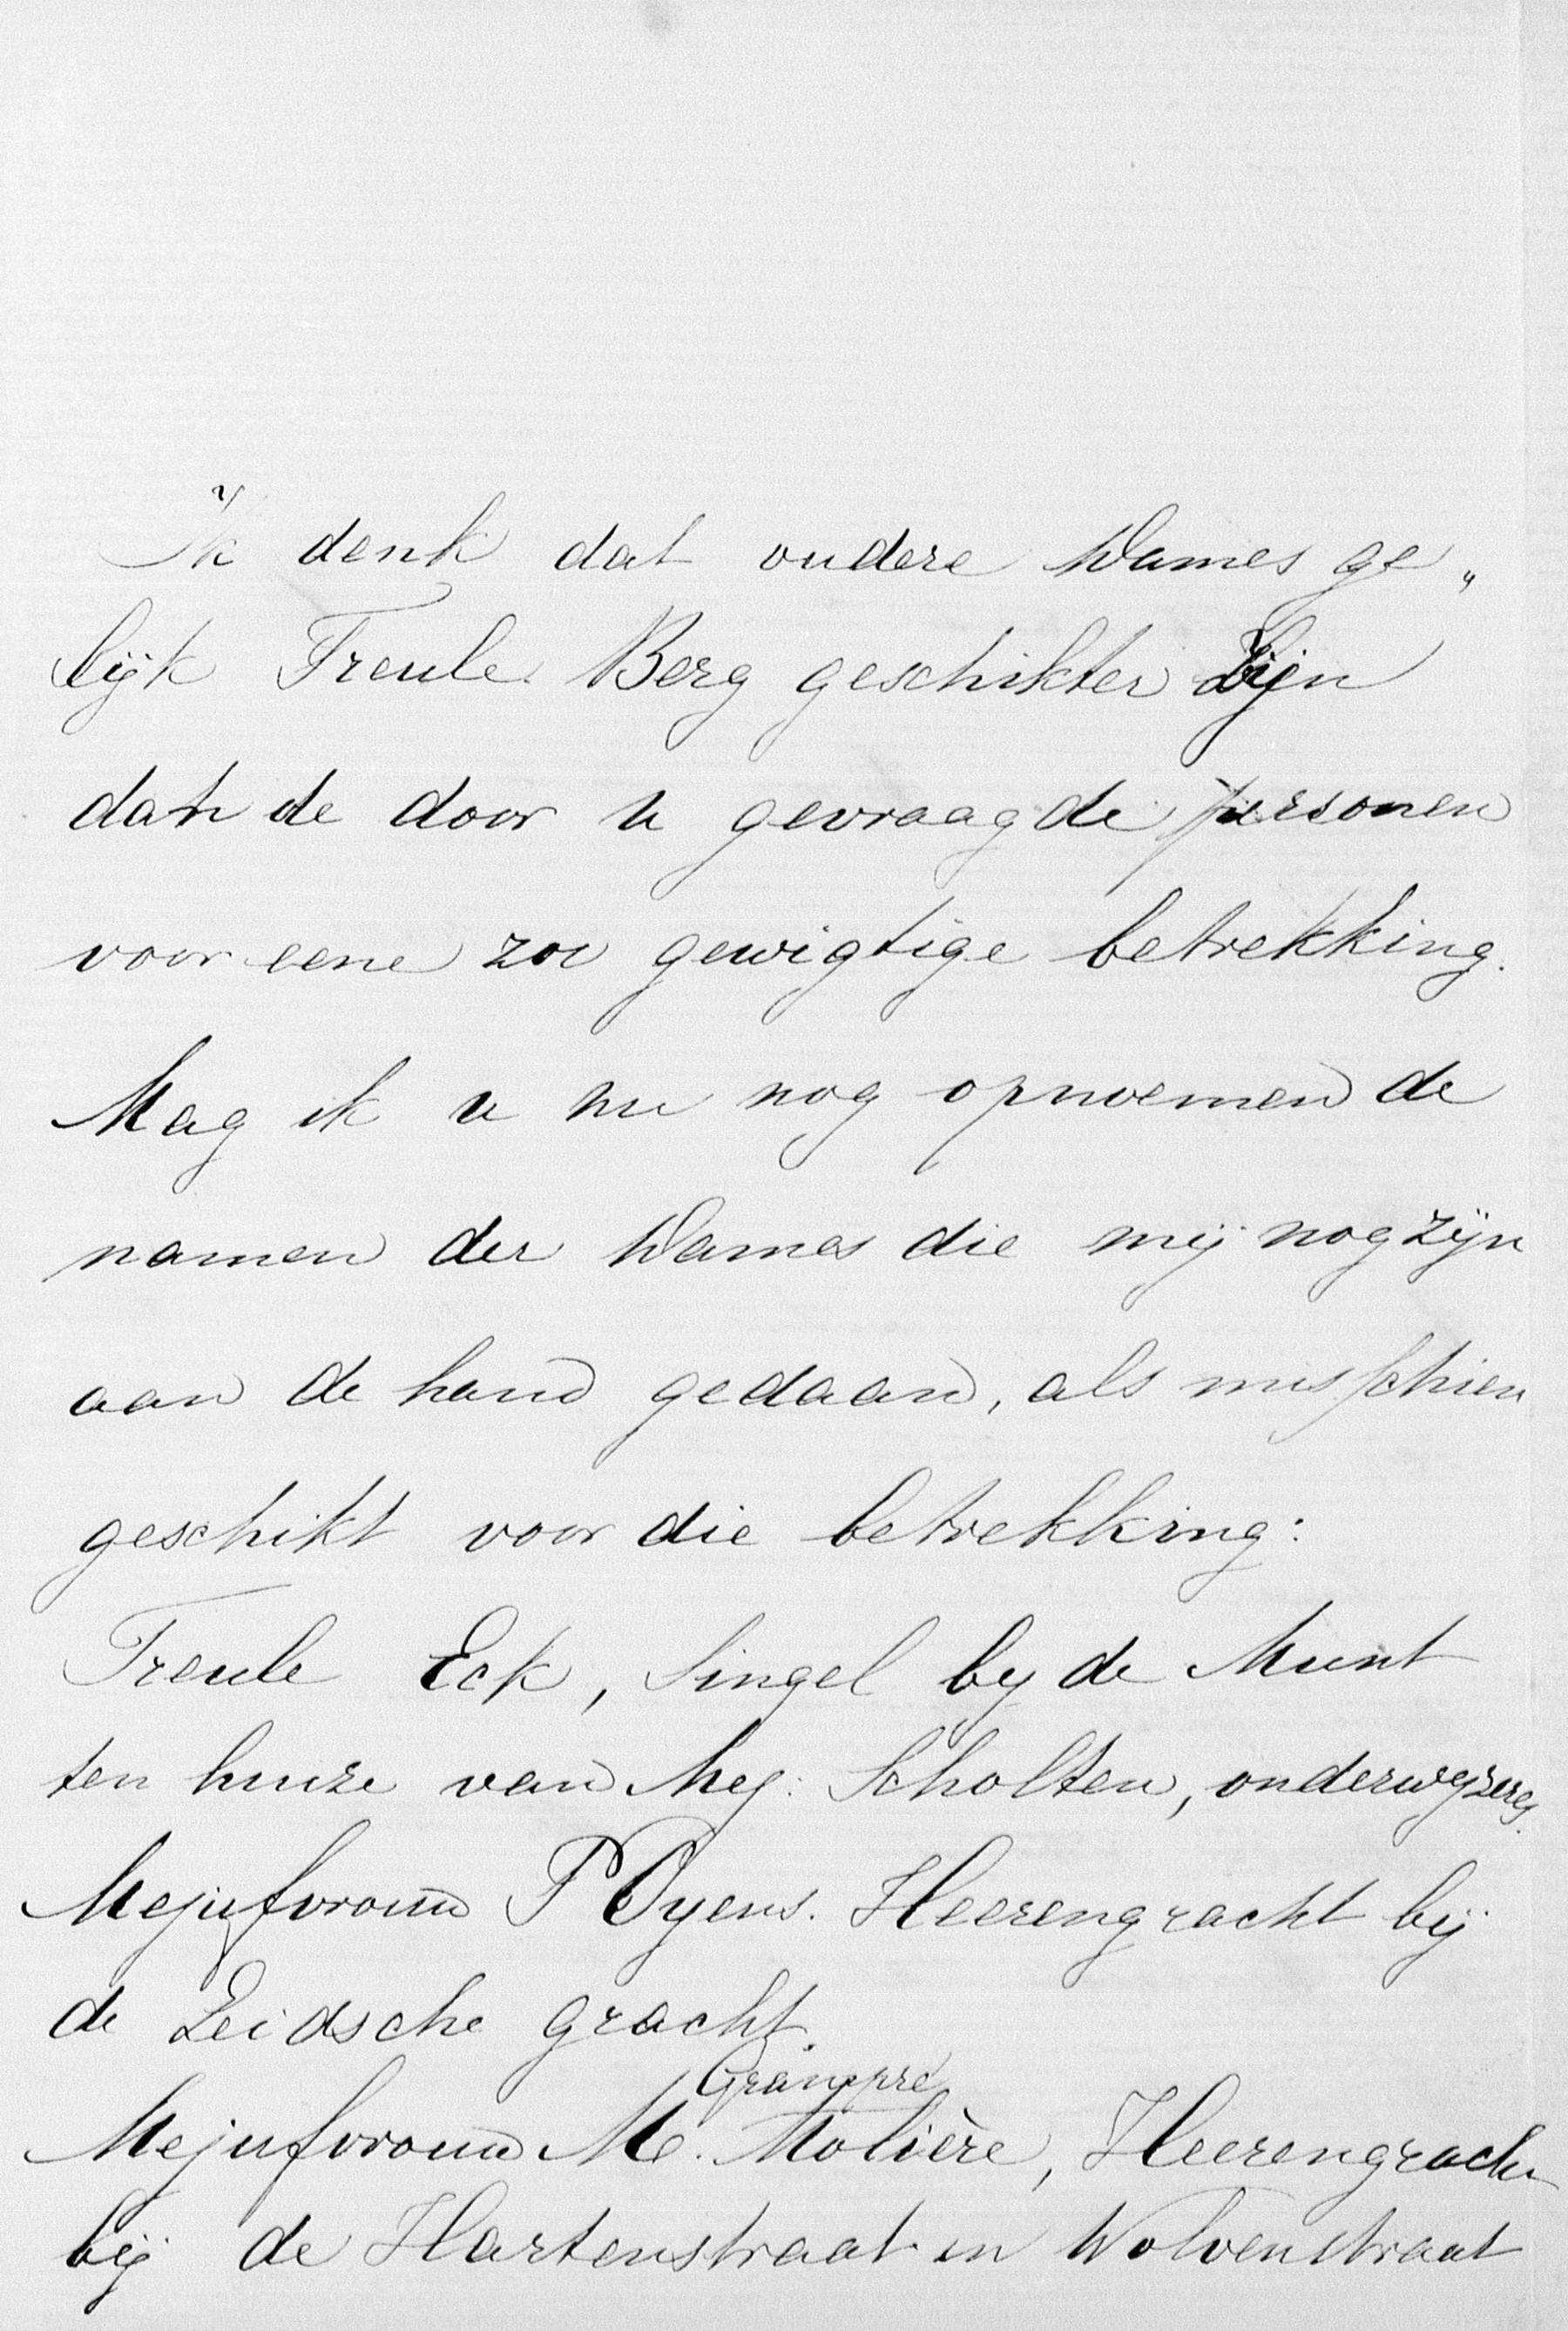 Ik denk dat oudere Dames ge„
lijk Freule Berg geschikter zijn
dan de door u gevraagde personen
voor eene zoo gewigtige betrekking.
Mag ik u nu nog opnoemen de
namen der Dames die mij nog zijn
aan de hand gedaan, als misschien
geschikt voor die betrekking:
Freule Eck, Singel by de Munt
ten huize van Mej: Scholten, onderwyzeres.
Mejufvrouw P Oyens. Heerengracht bij
de Leidsche gracht.
Grampré
Mejufvrouw M. Molière, Heerengracht
bij de Hartenstraat en Wolvenstraat